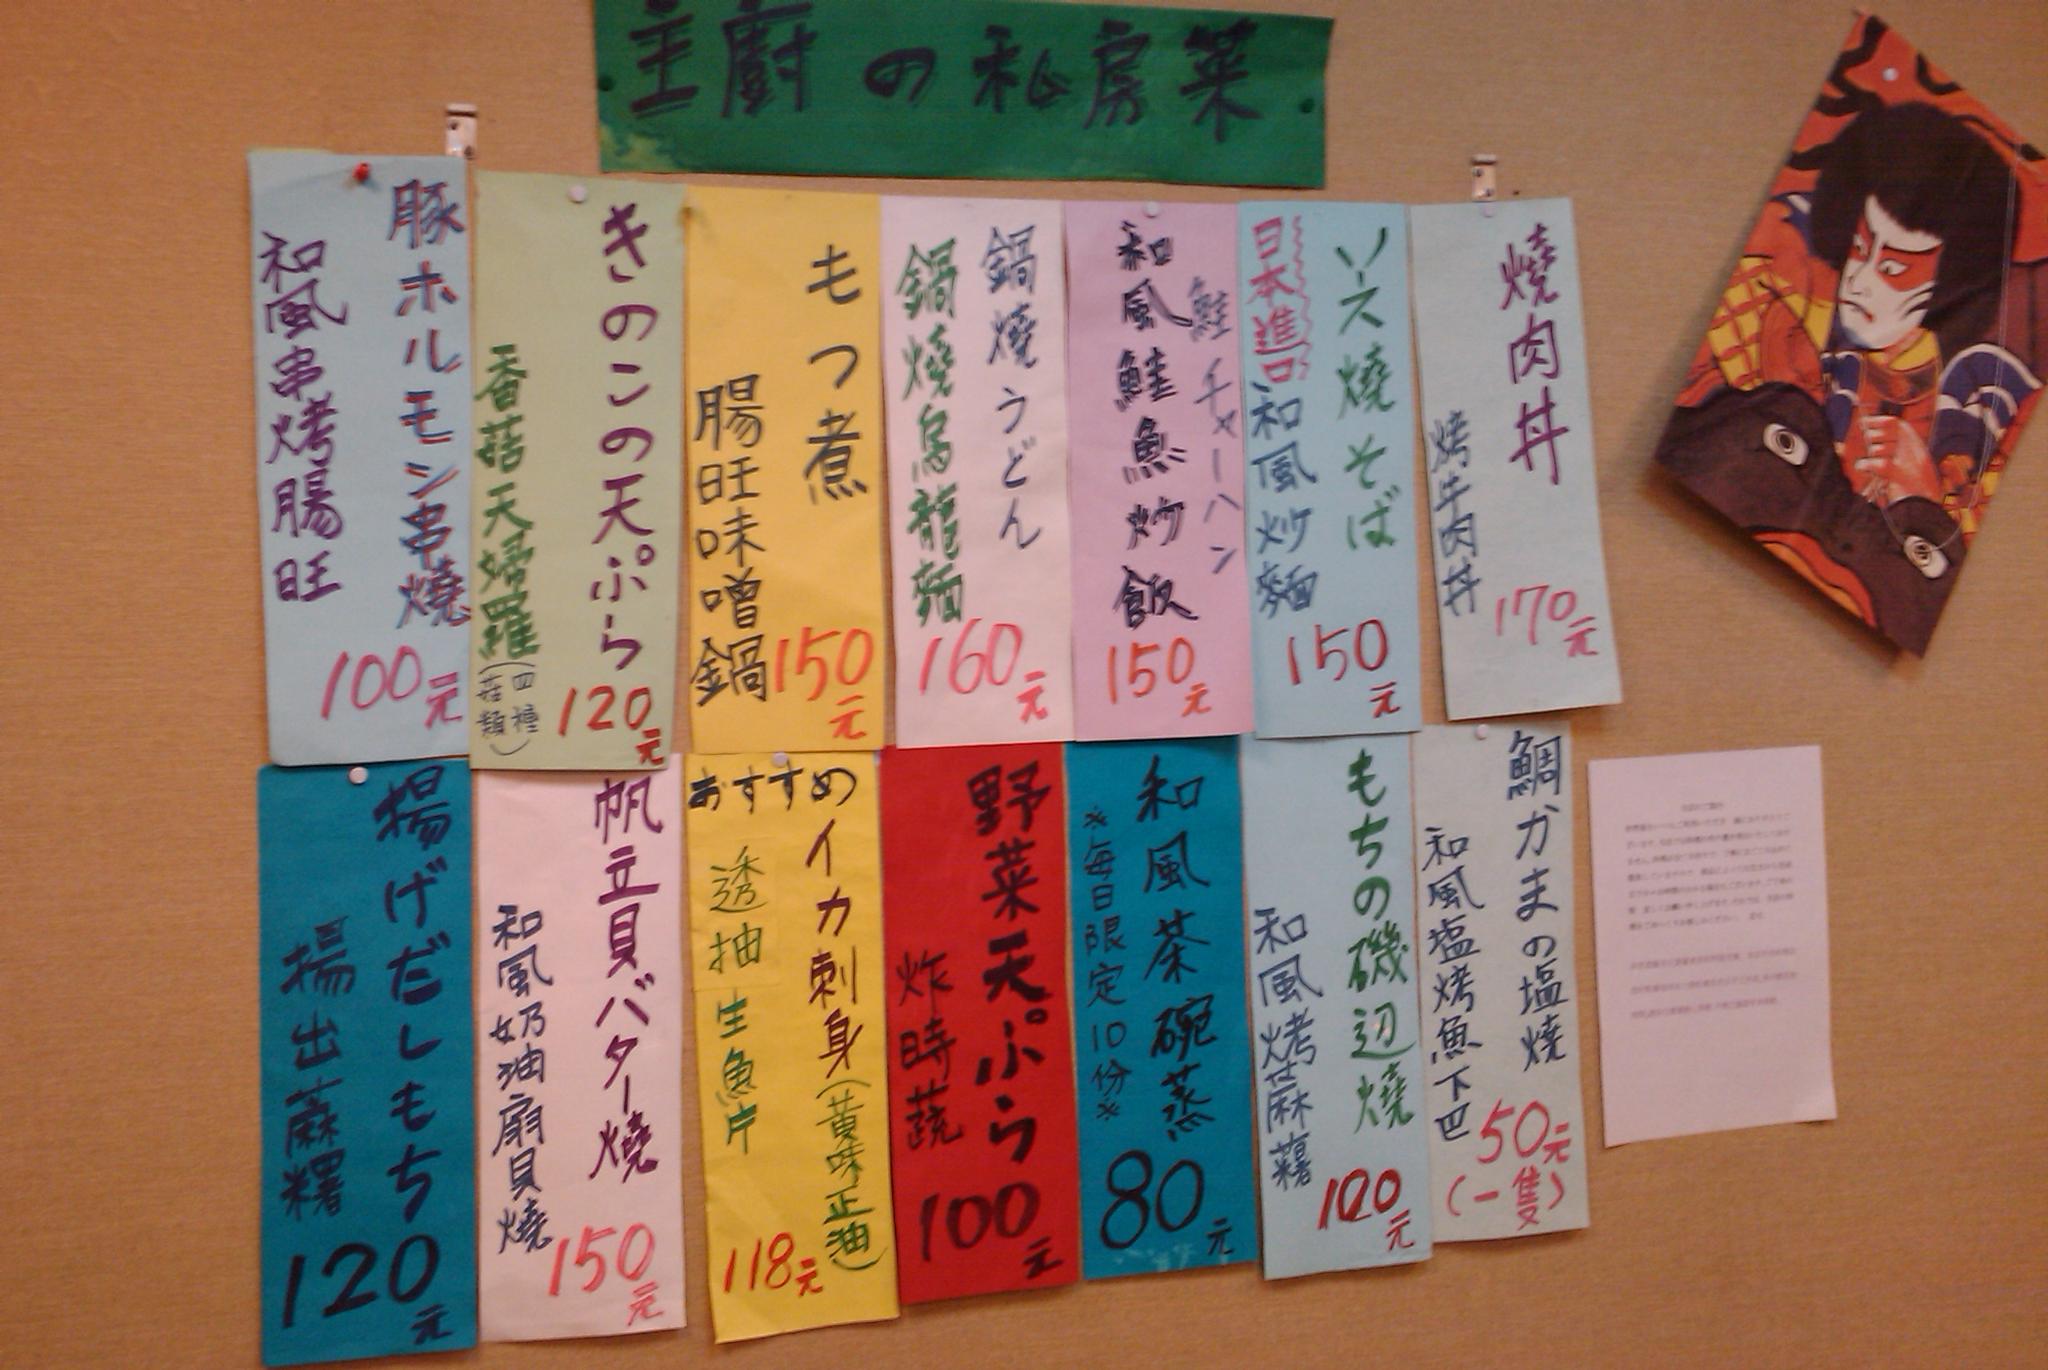 主廚の私房菜
豚ホルモン串燒
和風串烤腸旺
100元
きのこの天ぷら
香菇天婦羅
(四種菇類)
120元
もつ煮
腸旺味噌鍋
150元
鍋燒うどん
鍋燒烏龍麵
160元
鮭チャーハン
和風鮭魚炒飯
150元
ソース燒そば
日本進口
和風炒麵
150元
燒肉丼
烤牛肉丼
170元
揚げだしもち
揚出蔴糬
120元
帆立貝バター燒
和風奶油扇貝燒
150元
おすすめ
イカ刺身(黃味正油)
透抽生魚片
118元
野菜天ぷら
炸時蔬
100元
和風茶碗蒸
※每日限定10份※
80元
もちの磯辺燒
和風烤蔴糬
100元
鯛かまの塩燒
和風塩烤魚下巴
50元
(一隻)